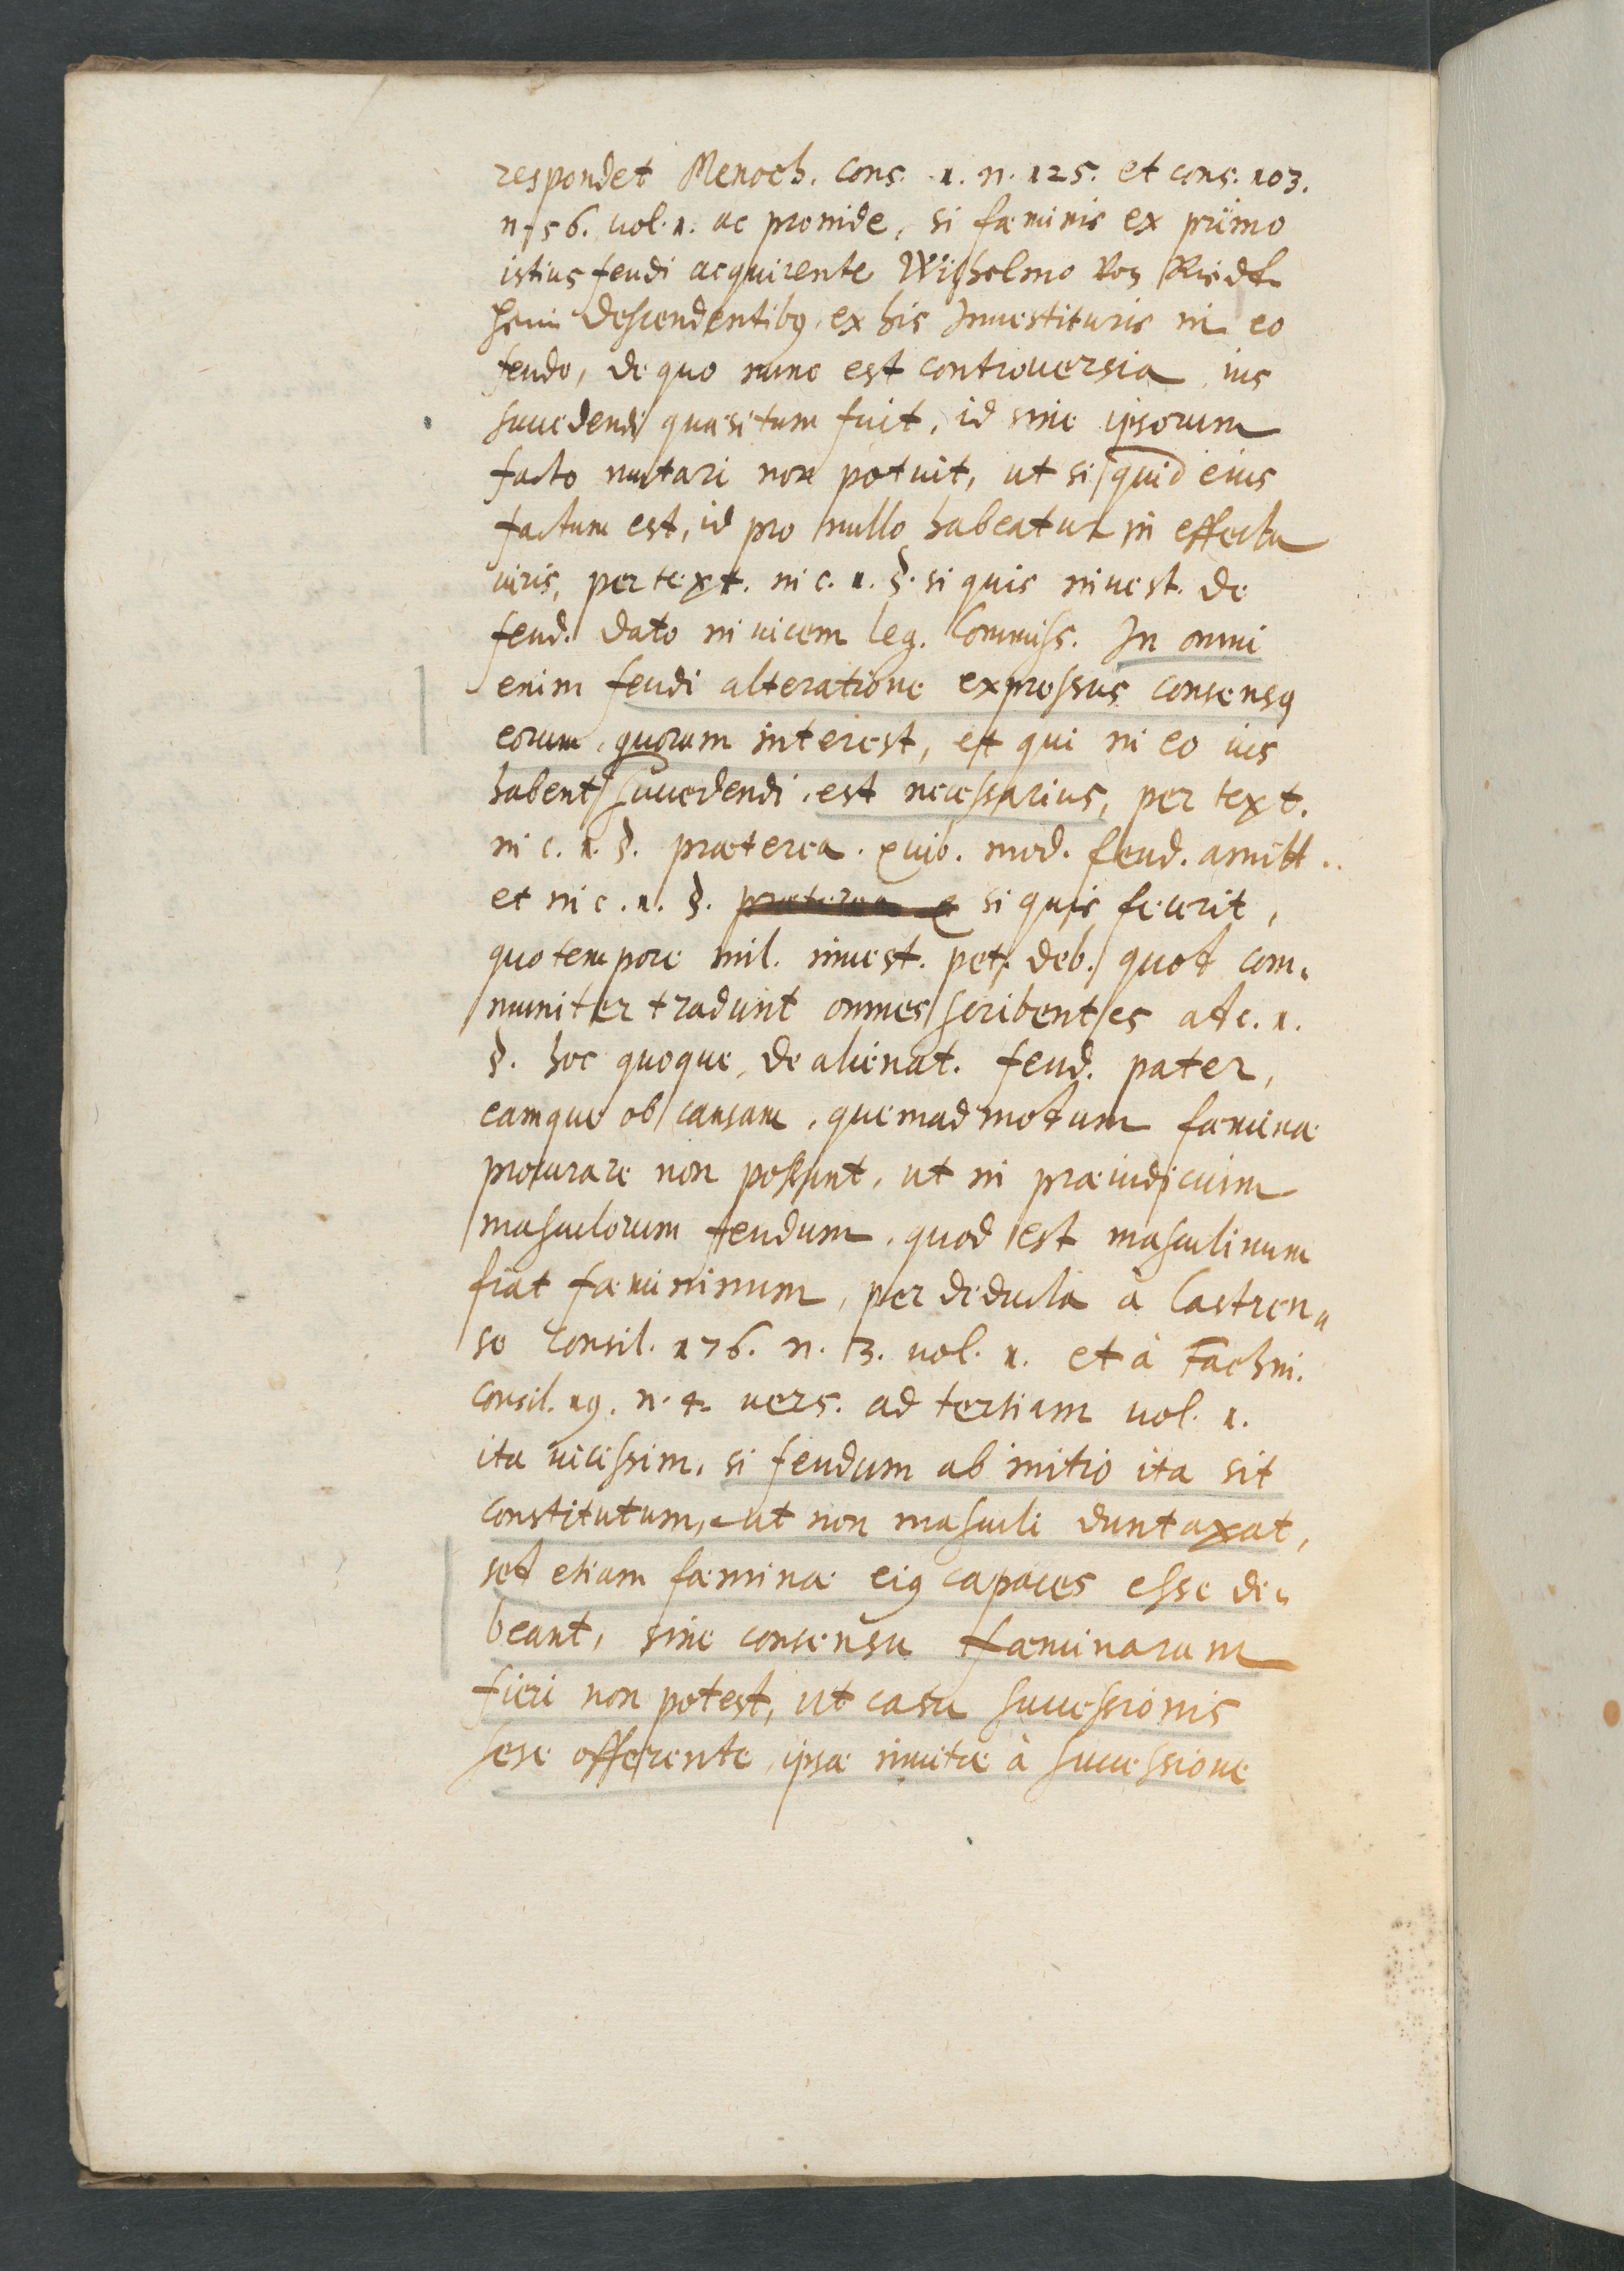 respondet Menoch. cons. 1. n. 125. et cons. 103.
n. 56. vol. 1. ac proinde, si fæminis ex primo
istius feudi acquirente Wilhelmo von Riedt
heim descendentibus, ex his Inuestituris in eo
feudo, de quo nunc est controuersia, ius
succedendi quæsitum fuit, id sine ipsorum
facto mutari non potuit, ut si quid eius
factum est, id pro nullo habeatur in effectu
iuris, per text. in c. 1. §. si quis inuest. de
feud. dato in uicem leg. Commiss. In omni
enim feudi alteratione expressus consensus
eorum, quorum interest, et qui in eo ius
habent succedendi, est necessarius, per text.
in c. 1. §. præterea. quib. mod. feud. amitt..
et in c. 1. §. si quis fecerit,
quo tempore mil. inuest. pet. deb. quot com,
muniter tradunt omnes scribentes at c. 1.
§. hoc quoque, de alienat. feud. pater,
eamque ob causam, quemadmotum fæminæ
procurare non possunt, ut in præiudicium
masculorum feudum, quod est masculinum
fiat fæmininum, per deducta à Castren,
se Consil. 176. n. 3. vol. 1. et à Fachin.
Consil. 19. n. 4. uers. ad tertiam uol. 1.
ita uicissim, si feudum ab initio ita sit
constitutum, ut non masculi duntaxat,
set etiam fæminæ eius capaces esse de,
beant, sine consensu fæminarum
fieri non potest, ut casu successionis
sese offerente, ipsæ inuitæ à successione